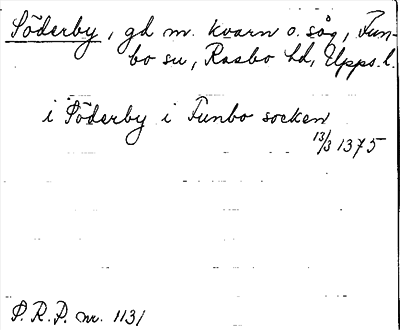 Söderby, gd m. kvarn o. såg, Fun-
bo su, Rasbo hd, Upps. l.
i Söderby i Funbo socken
13/3 1375
P.R.P. nr. 1131